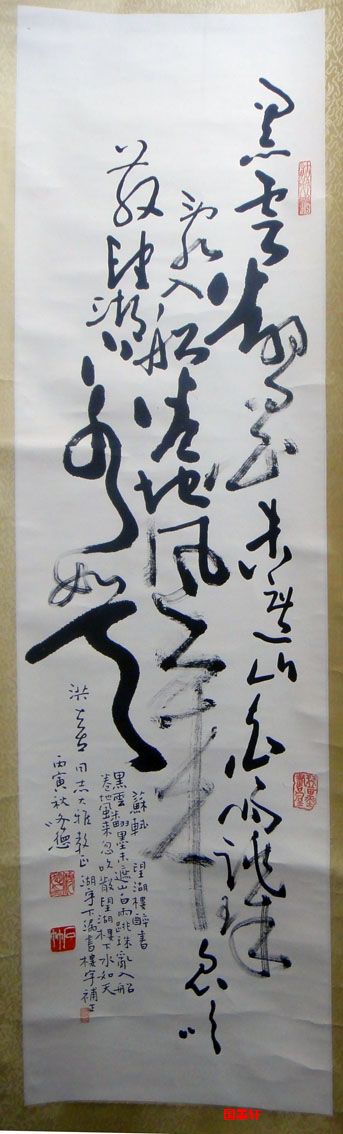 黑雲翻墨未遮山白雨跳珠
亂入船卷地風來
忽吹
散望湖下水如天
蘇軾 望湖樓醉書
黑雲翻墨未遮山白雨跳珠亂入船
卷地風來忽吹散望湖樓下水如天
湖字下漏書樓字補上
同志大雅教正
丙寅秋